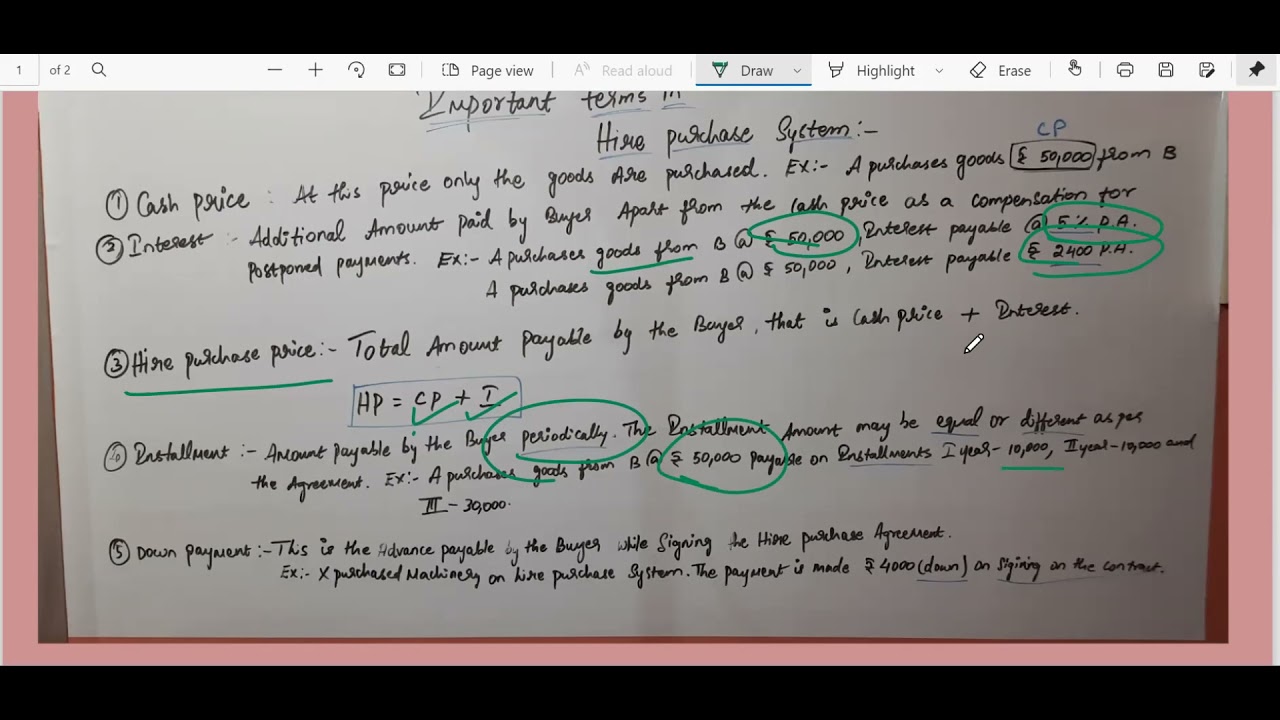 1 of 2 Page view Read aloud Draw Highlight Erase
Important terms in
Hire purchase System:-
CP
① Cash price : At this price only the goods are purchased. Ex:- A purchases goods ₹ 50,000 from B
② Interest :- Additional Amount paid by Buyer Apart from the cash price as a compensation for
postponed payments. Ex:- A purchases goods from B @ ₹ 50,000, Interest payable @ 5% P.A.
A purchases goods from B @ ₹ 50,000, Interest payable ₹ 2400 P.A.
③ Hire purchase price:- Total Amount payable by the Buyer, that is Cash price + Interest.
HP = CP + I
④ Installment :- Amount payable by the Buyer periodically. The Installment Amount may be equal or different as per
the Agreement. Ex:- A purchases goods from B @ ₹ 50,000 payable on Installments I year- 10,000, II year-10,000 and
III - 30,000.
⑤ Down payment :- This is the Advance payable by the Buyer while Signing the Hire purchase Agreement.
Ex:- X purchased Machinery on hire purchase System. The payment is made ₹ 4000 (down) on Sigining on the contract.